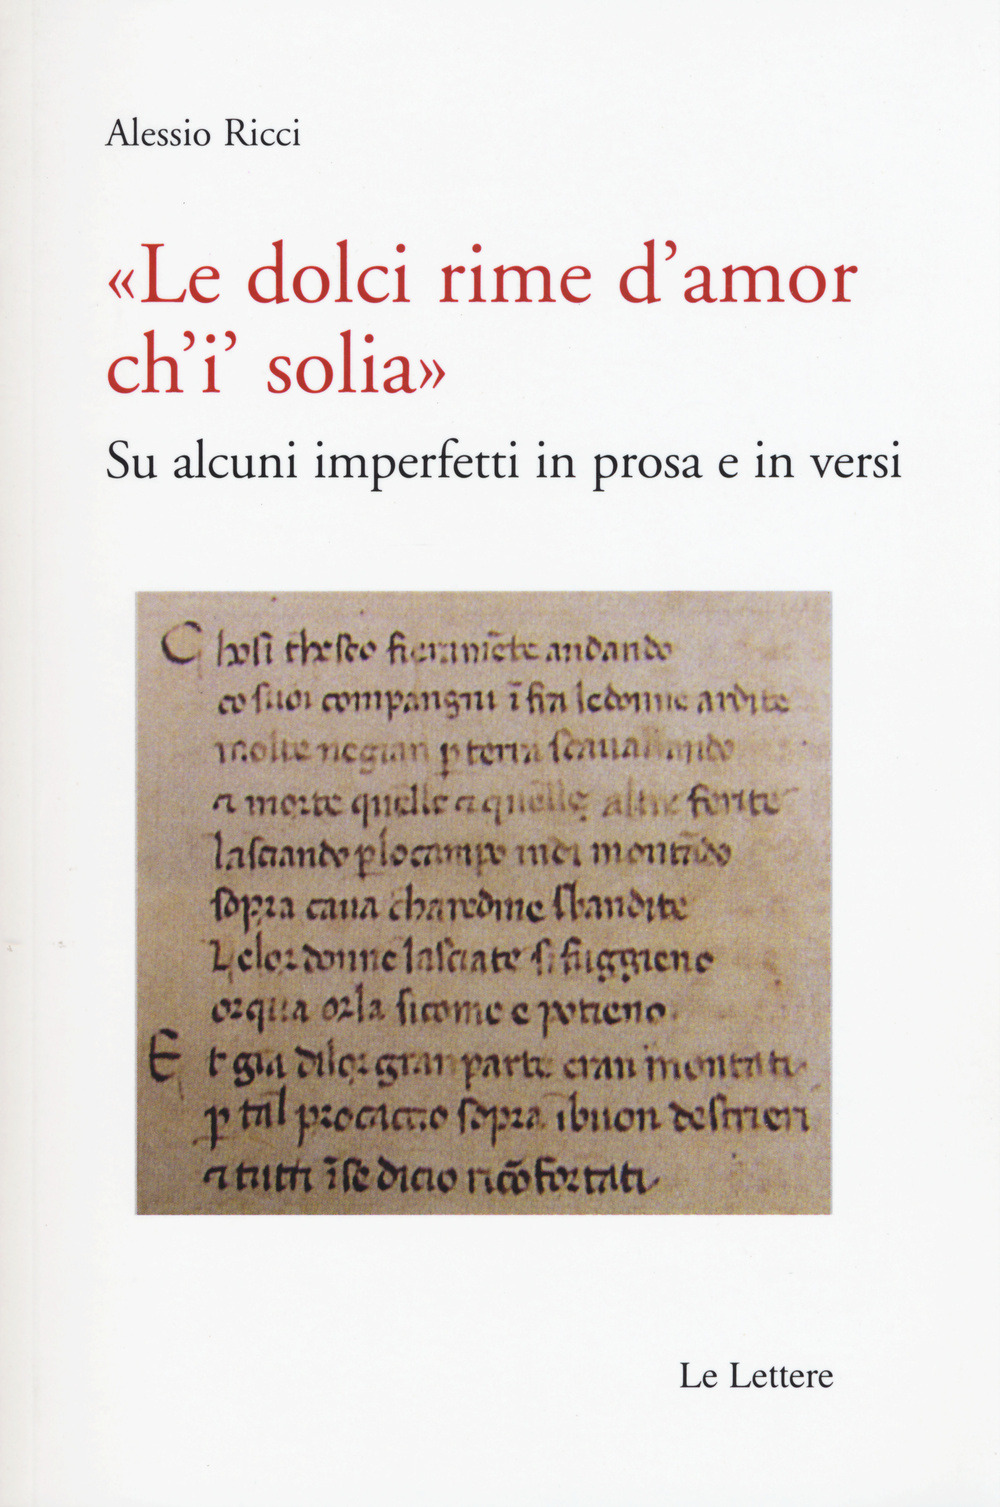 Alessio Ricci
«Le dolci rime d’amor
ch’i’ solia»
Su alcuni imperfetti in prosa e in versi
C hosi theseo fieramẽte andando
co suoi compangni ĩ fra ledonne ardite
molte negian p terra scaualcando
a morte quelle a quelle altre ferite
lasciando plocampo montãdo
sopra caua charedine sbandite
Lelor donne lasciate si fuggieno
orqua orla sicome e potieno
E t gia dilor gran parte eran montati
p tal procaccio sopra ibuon destrieri
a tutti ĩse dicio ricõfortati
Le Lettere